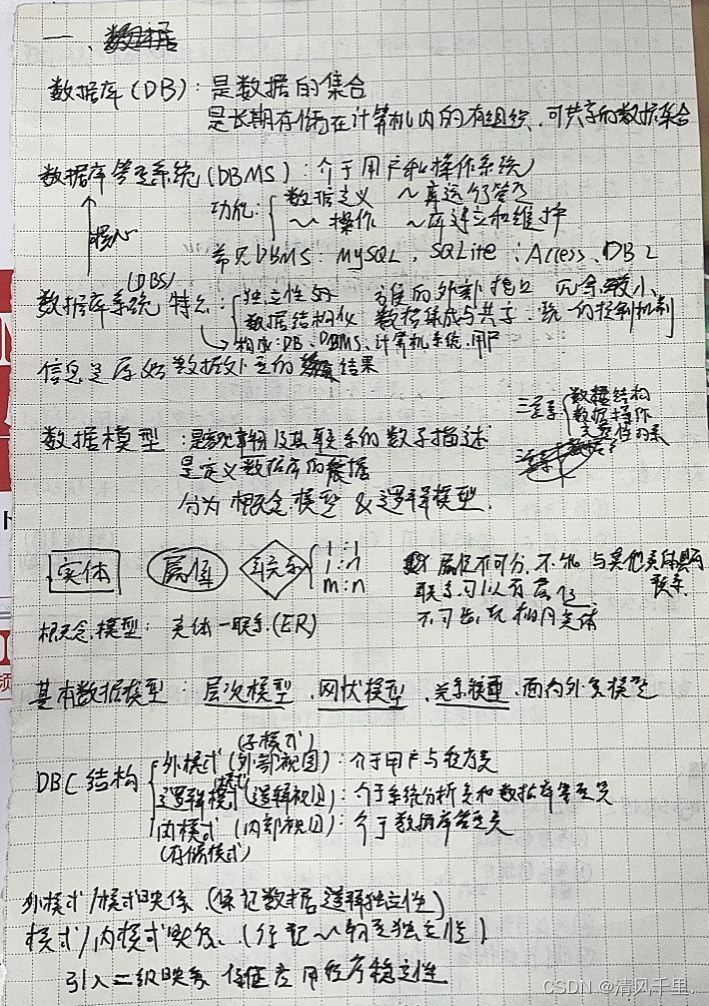 一、数据
数据库(DB)：是数据的集合
是长期存储在计算机内的有组织、可共享的数据集合
数据库管理系统(DBMS)：介于用户和操作系统
功能：数据定义 ~库运行管理
~操作 ~库建立和维护
核心
常见DBMS：MySQL、SQLite；Access、DB2
(DBS)
数据库系统 特点：独立性 方便的外部接口 冗余较小
数据结构化 数据集成与共享、统一的控制机制
构成：DB、DBMS、计算机系统、用户
信息是原始数据处理的结果
三要素 数据结构
数据操作
数据模型：是 及其联系的数字描述
是定义数据库的依据
分为概念模型&逻辑模型
实体 属性 联系 1:1
1:n
m:n
属性不可分、不能与其他实体具有联系
联系可以有属性
不可出现相同实体
概念模型：实体—联系(ER)
基本数据模型：层次模型、网状模型、关系模型、面向对象模型
DBC结构
(子模式)
外模式(外部视图)：介于用户与程序员
(模式)
逻辑模式(逻辑视图)：介于系统分析员和数据库管理员
内模式(内部视图)：介于数据库管理员
(存储模式)
外模式/模式映像(保证数据逻辑独立性)
模式/内模式映象(保证~物理独立性)
引入二级映象 保证应用程序稳定性
CSDN @清风千里、